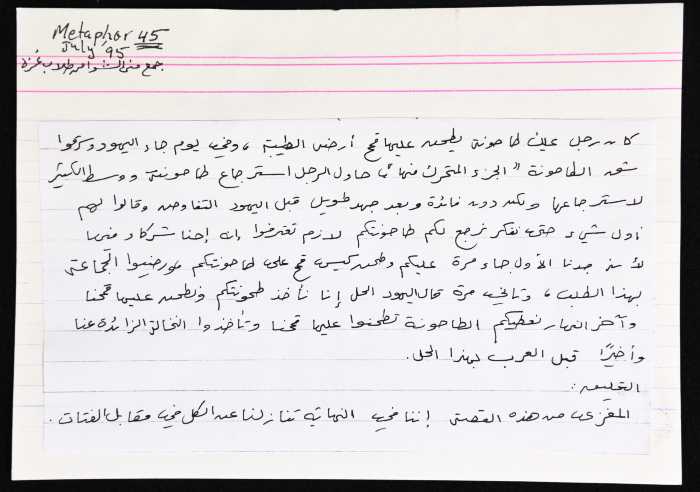 Metaphor 45
July '95
جمع منى الشوا من طلاب غزة
كان رجل عنده طاحونة يطحن عليها قمح أرضه الطيبة ، وفي يوم جاء اليهود وسرقوا
شق الطاحونة "الجزء المتحرك فيها" حاول الرجل استرجاع طاحونته ووسط الكثير
لاسترجاعها ولكن دون فائدة وبعد جهد طويل قبل اليهود التفاوض وقالوا لهم
أول شيء حتى نفكر نرجع لكم طاحونتكم لازم تعترفوا إنه إحنا شركاء فيها
لأنه جدنا الأول جاء مرة عليكم وطحن كيس قمح على طاحونتكم ورضيوا الجماعة
بهذا الطلب ، وثاني مرة قال اليهود الحل إننا نأخذ طحونتكم ونطحن عليها قمحنا
وآخر النهار نعطيكم الطاحونة تطحنوا عليها قمحنا وتأخذوا النخالة الزائدة عنا
وأخيرًا قبل العرب بهذا الحل .
التعليق :
المغزى من هذه القصة إننا في النهاية تنازلنا عن الكل في مقابل الفتات .